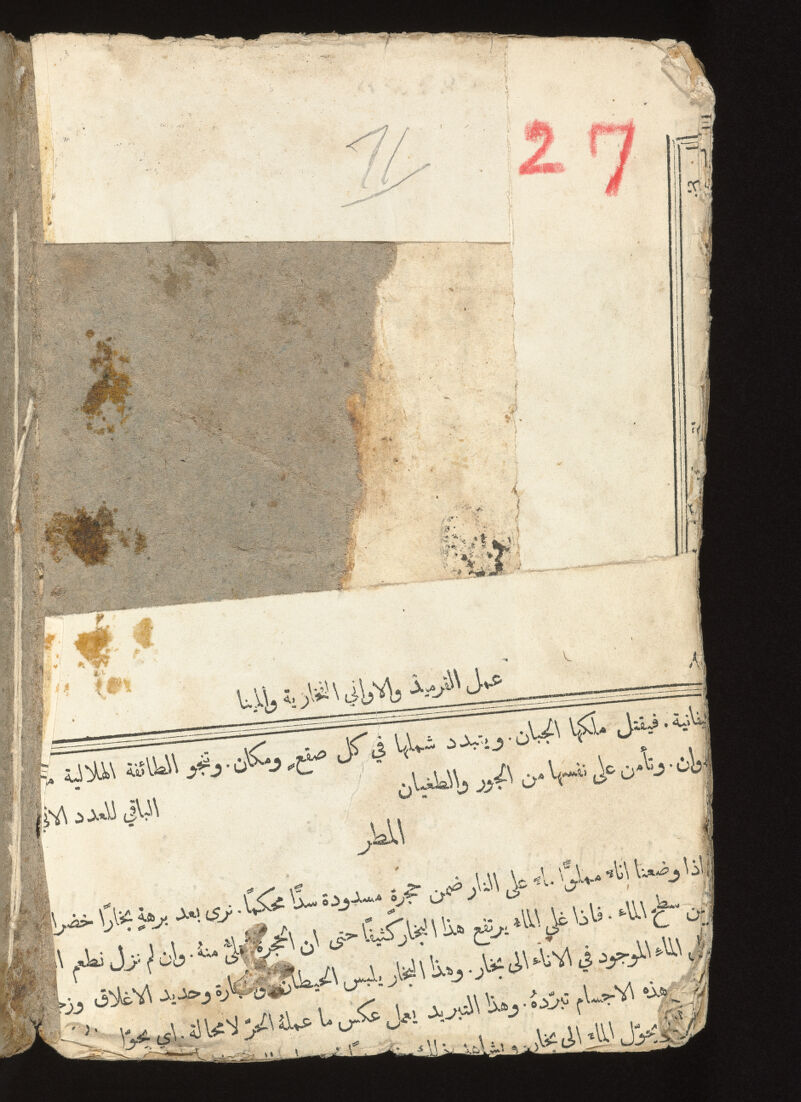 27
71
٨
عمل القرميد والاواني الفخارية والمينا
فيقتل ملكها الجبان. ويتبدد شملها في كل صقعٍ ومكان. وتنجو الطائفة الهلالية
وتأمن على نفسها من الجور والطغيان
الباقي للعدد الاتي
المطر
اذا وضعنا اناءً مملوًّا ماءً على النار ضمن حجرةٍ مسدودة سدًّا محكمًا. نرى بعد برهةٍ بخارًا
سطح الماء. فاذا غلي الماء يرتفع هذا البخار كثيفًا حتى ان الحجرة منهُ. وان لم نزل نطعم
الماء الموجود في الاناء الى بخار. وهذا البخار يلبس الحيطان وحديد الاغلاق
هذه الاجسام تبرّدهُ. وهذا التبريد يعمل عكس ما عملهُ الحرّ لا محالة. اي
يحوّل الماء الى بخار.